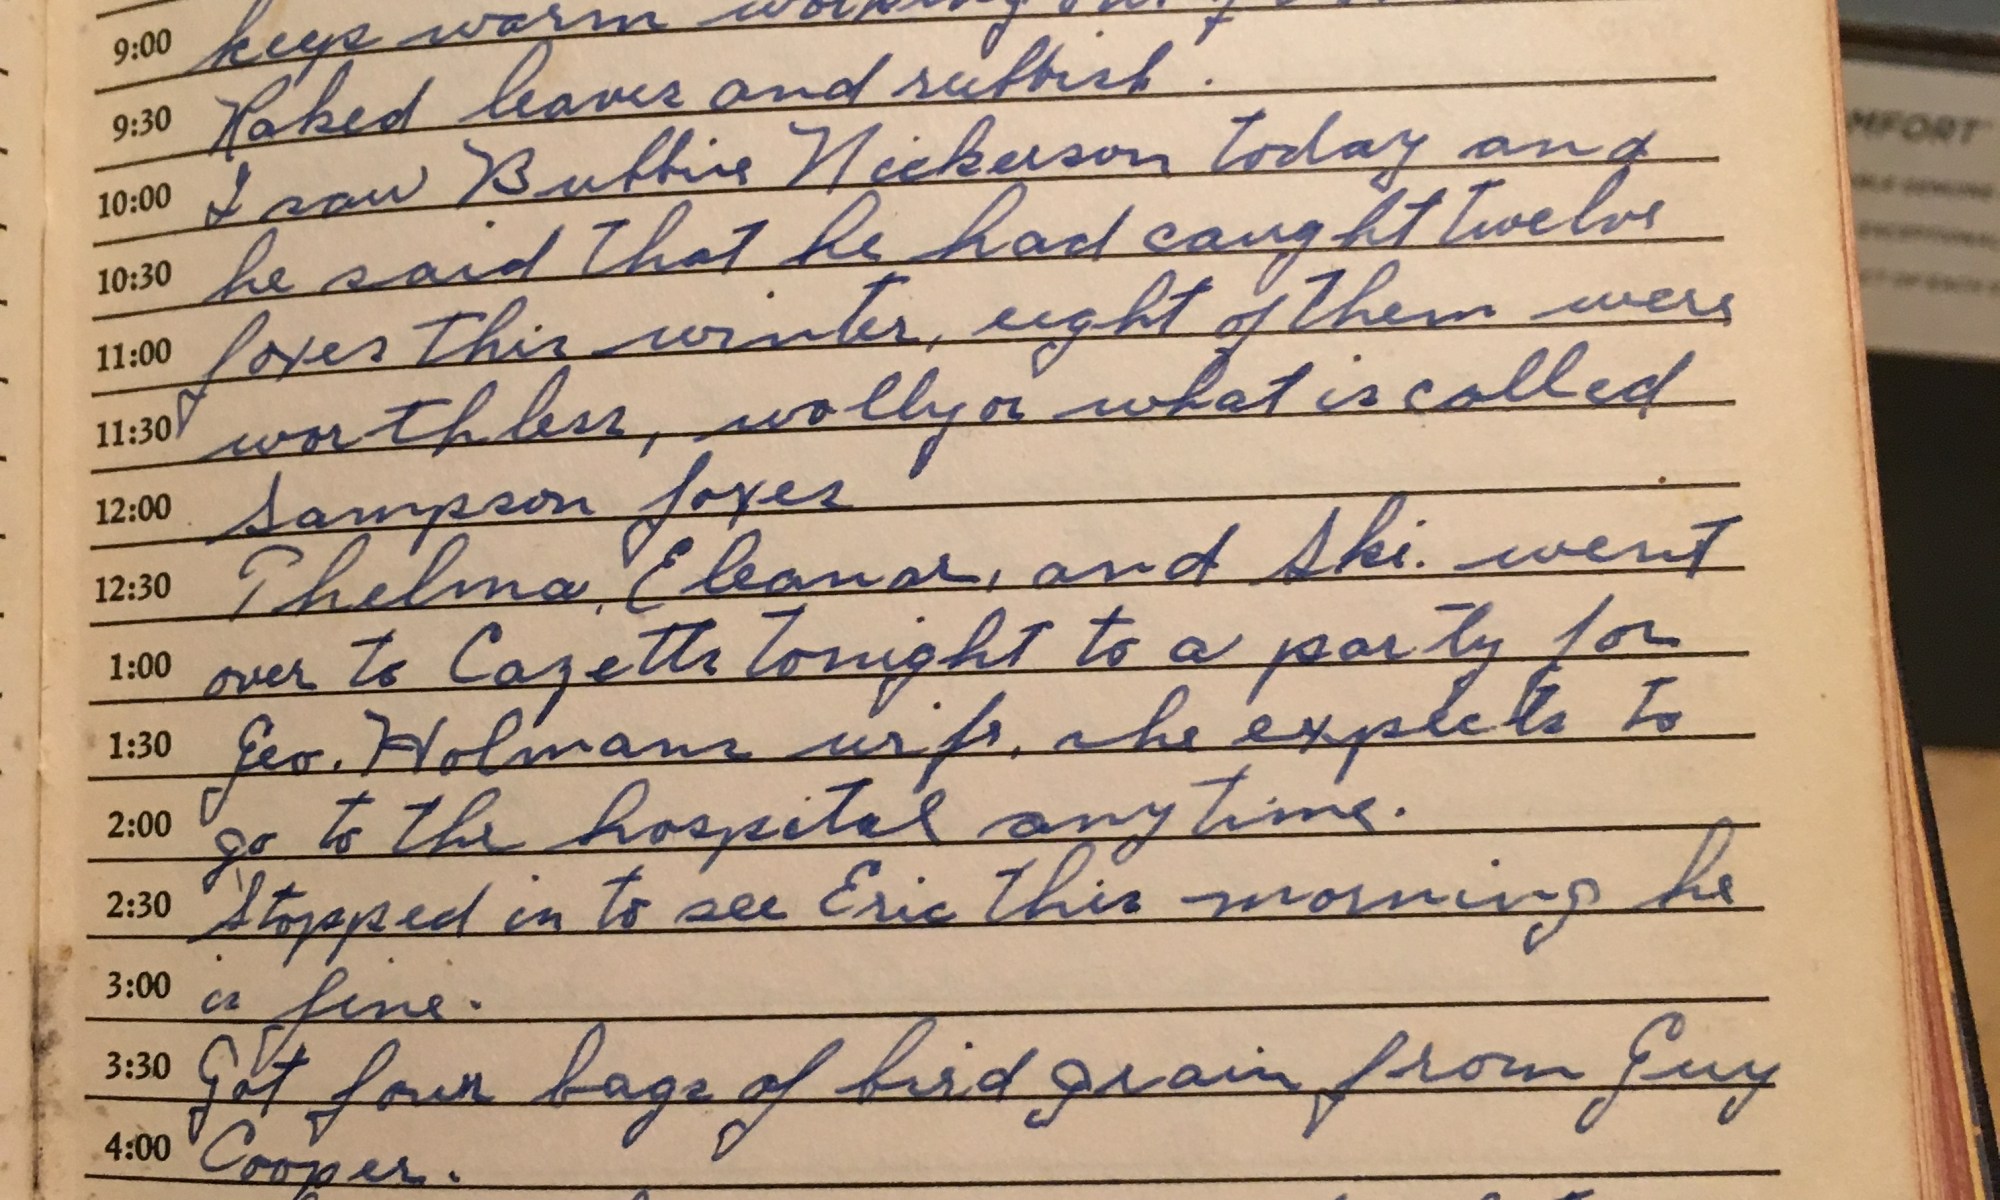 9:00 keeps warm working
9:30 Raked leaves and rubbish.
10:00 I saw Bubbie Nickerson today and
10:30 he said that he had caught twelve
11:00 foxes this winter, eight of them were
11:30 worthless, wolly or what is called
12:00 Sampson foxes
12:30 Thelma, Eleanor, and Ski. went
1:00 over to Cazetts tonight to a party for
1:30 Geo. Holmans wife, she expects to
2:00 go to the hospital anytime.
2:30 Stopped in to see Eric this morning he
3:00 is fine.
3:30 Got four bags of bird grain from Guy
4:00 Cooper.
MFORT